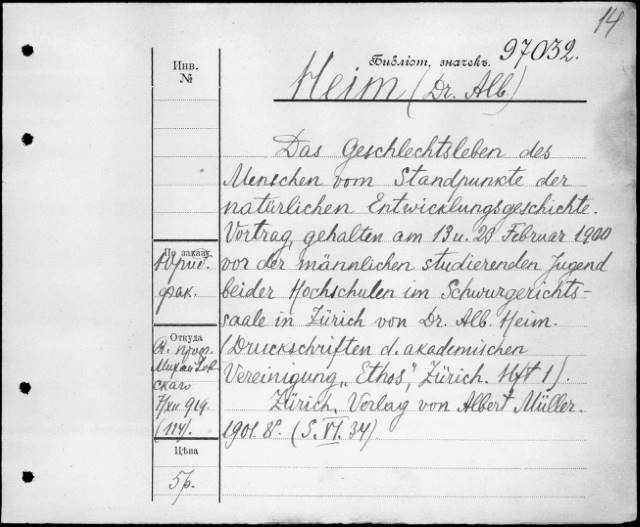 14
Библіот. значекъ. 97032.
Инв.
№
Heim (Dr. Alb.)
Das Geschlechtsleben des
Menschen vom Standpunkte der
natürlichen Entwicklungsgeschichte.
Vortrag, gehalten am 13 u. 20 Februar 1900
vor der männlichen studierenden Jugend
beider Hochschulen im Schwurgerichts-
saale in Zürich von Dr. Alb. Heim.
(Druckschriften d. akademischen
Vereinigung „Ethos", Zürich. Hft 1).
Zürich, Verlag von Albert Müller.
1901. 8°. (S. VI. 34)
По заказу
Юрид.
фак.
Откуда
проф.
Михайлов
скаго
7/XII 919
(114).
Цѣна
5 р.